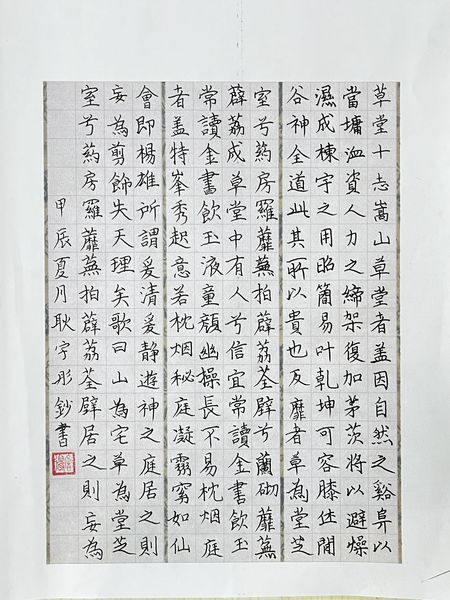 草堂十志嵩山草堂者盖因自然之谿阜以
當墉洫資人力之締架復加茅茨將以避燥
濕成棟宇之用昭簡易叶乾坤可容膝休閒
谷神全道此其所以貴也及靡者草為堂芝
室兮葯房羅蘼蕪拍薜荔荃壁兮蘭砌蘼蕪
薜荔成草堂中有人兮信宜常讀金書飲玉
常讀金書飲玉液童顏幽操長不易枕烟庭
者盖特峯秀起意若枕烟秘庭凝霧窅如仙
會即楊雄所謂爰清爰静遊神之庭居之則
妄為剪飾失天理矣歌曰山為宅草為堂芝
室兮葯房羅蘼蕪拍薜荔荃壁居之則妄為
甲辰夏月耿宇彤鈔書